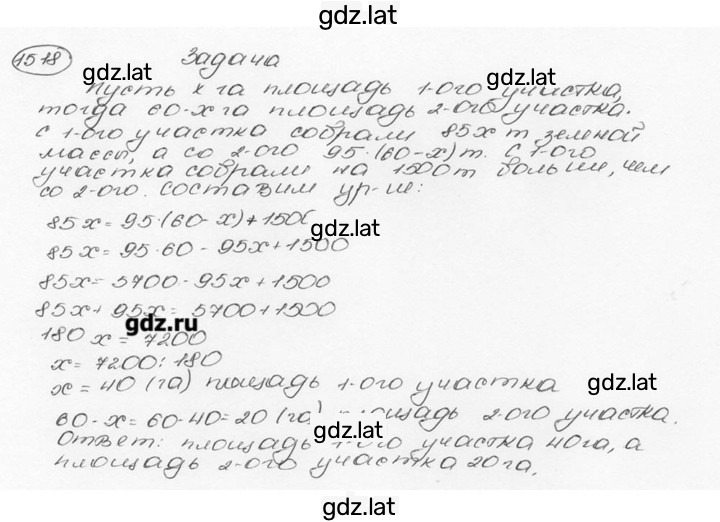 gdz.lat
1518 Задача
gdz.lat gdz.lat
Пусть х га площадь 1-ого участка,
тогда 60-х га площадь 2-ого участка.
С 1-ого участка собрали 85х т зеленой
массы, а со 2-ого 95·(60-х)т. С 1-ого
участка собрали на 1500т больше, чем
со 2-ого. Составим ур-ие:
85х = 95·(60-х)+1500
gdz.lat
85х = 95·60 - 95х+1500
85х = 5700 - 95х+1500
85х + 95х = 5700+1500
gdz.ru
180 х = 7200
х = 7200:180
х = 40 (га) площадь 1-ого участка
gdz.lat
60-х = 60-40=20 (га) площадь 2-ого участка.
gdz.lat
Ответ: площадь 1-ого участка 40га, а
площадь 2-ого участка 20га.
gdz.lat